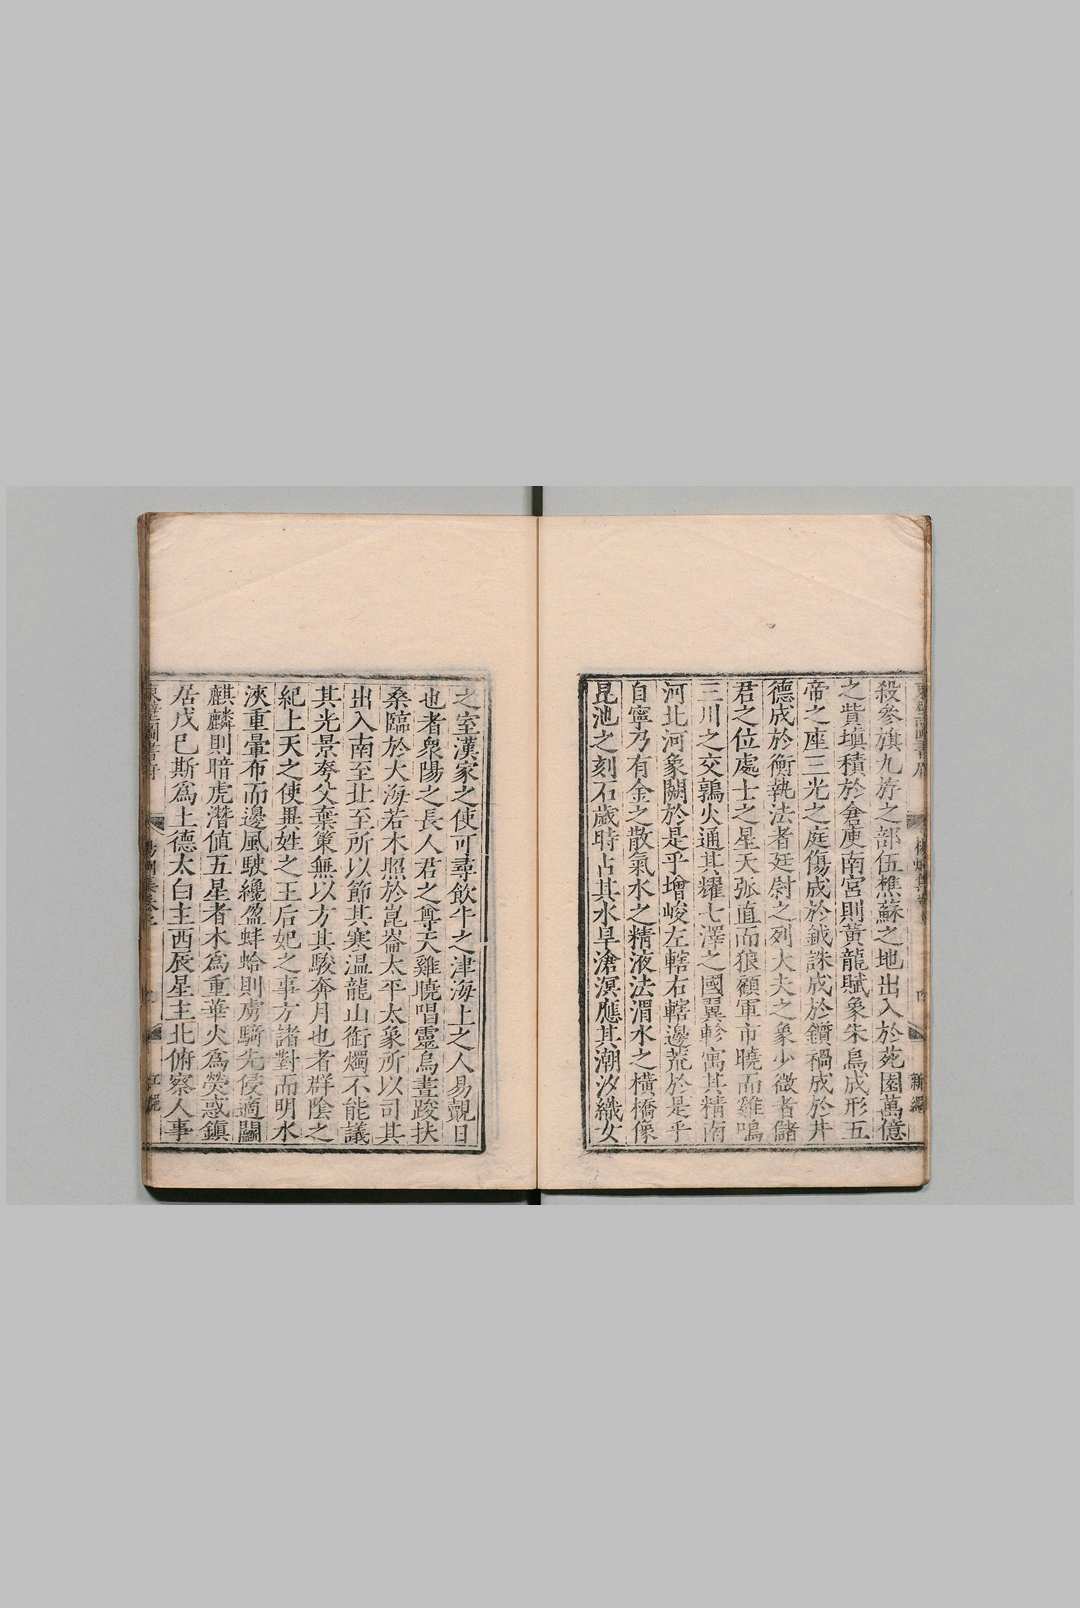 殺參旗九斿之部伍樵蘇之地出入於苑園萬億
之貲塡積於倉庾南宮則黃龍賦象朱鳥成形五
帝之座三光之庭傷成於鉞誅成於鑕禍成於井
德成於衡執法者廷尉之列大夫之象少微者儲
君之位處士之星天弧直而狼顧軍市曉而雞鳴
三川之交鶉火通其耀七澤之國翼軫寓其精南
河北河象闕於是乎增峻左轄右轄邊荒於是乎
自寧乃有金之散氣水之精液法渭水之橫橋像
昆池之刻石歲時占其水旱滄溟應其潮汐織女
之室漢家之使可尋飲牛之津海上之人易覿日
也者衆陽之長人君之尊天雞曉唱靈烏晝踆扶
桑臨於大海若木照於崑崙太平太象所以司其
出入南至北至所以節其寒温龍山銜燭不能議
其光景夸父棄策無以方其駿奔月也者群陰之
紀上天之使異姓之王后妃之事方諸對而明水
浹重暈布而邊風駛纔盈蚌蛤則虜騎先侵適鬬
麒麟則暗虎潛値五星者木為重華火為熒惑鎮
居戊巳斯為土德太白主西辰星主北俯察人事